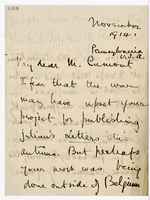 November
1914
Pennsylvania
U.S.A.
My dear M. Cumont
I fear that the war
may have upset your
project for publishing
Julian's Letters this
autumn. But perhaps
your work was being
done outside of Belgium